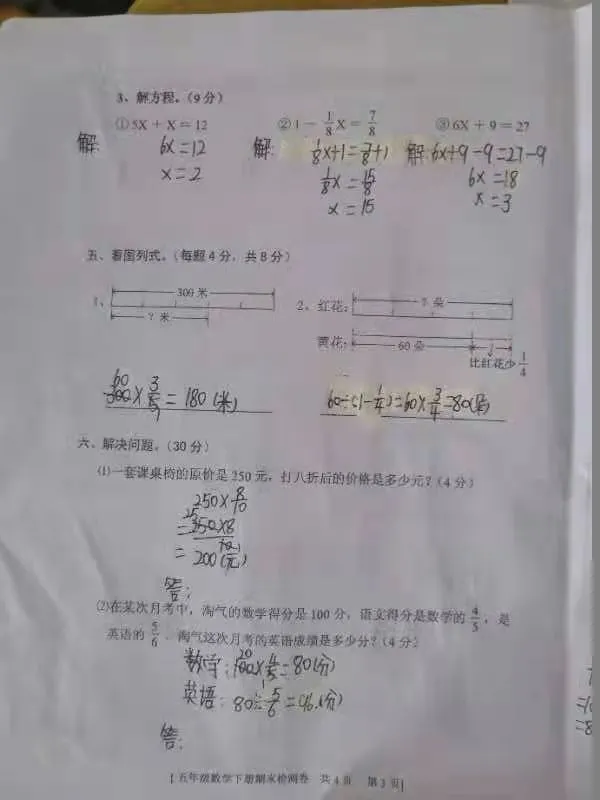 3、解方程。(9分)
①5X + X = 12 ②1 - 1/8 X = 7/8 ③6X + 9 = 27
解: 6x=12 解: 1/8x+1=7/8+1 解:6x+9-9=27-9
x=2 1/8x=15/8 6x=18
x=15 x=3
五、看图列式。(每题4分,共8分)
300米
1、 ?米
2、红花: ?朵
黄花: 60朵
比红花少1/4
60
300×3/5=180(米) 60÷(1-1/4)=60×3/4=80(朵)
六、解决问题。(30分)
(1)一套课桌椅的原价是250元,打八折后的价格是多少元?(4分)
250×8/10
25
=250×8/10 1
=200(元)
答:
(2)在某次月考中,淘气的数学得分是100分,语文得分是数学的4/5,是
英语的5/6,淘气这次月考的英语成绩是多少分?(4分)
20
数学:100×4/5=80(分)
1
英语:80÷5/6=96.(分)
答:
[五年级数学下册期末检测卷 共4页 第3页]